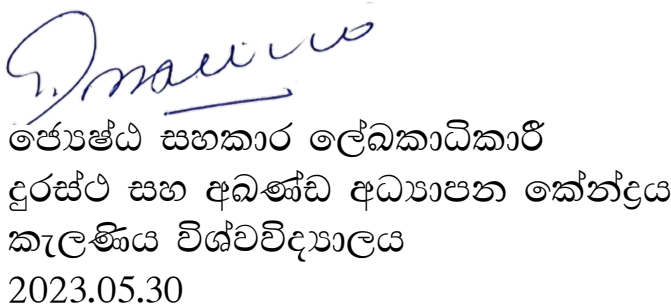 ජ්‍යෙෂ්ඨ සහකාර ලේඛකාධිකාරී
දුරස්ථ සහ අඛණ්ඩ අධ්‍යාපන කේන්ද්‍රය
කැලණිය විශ්වවිද්‍යාලය
2023.05.30